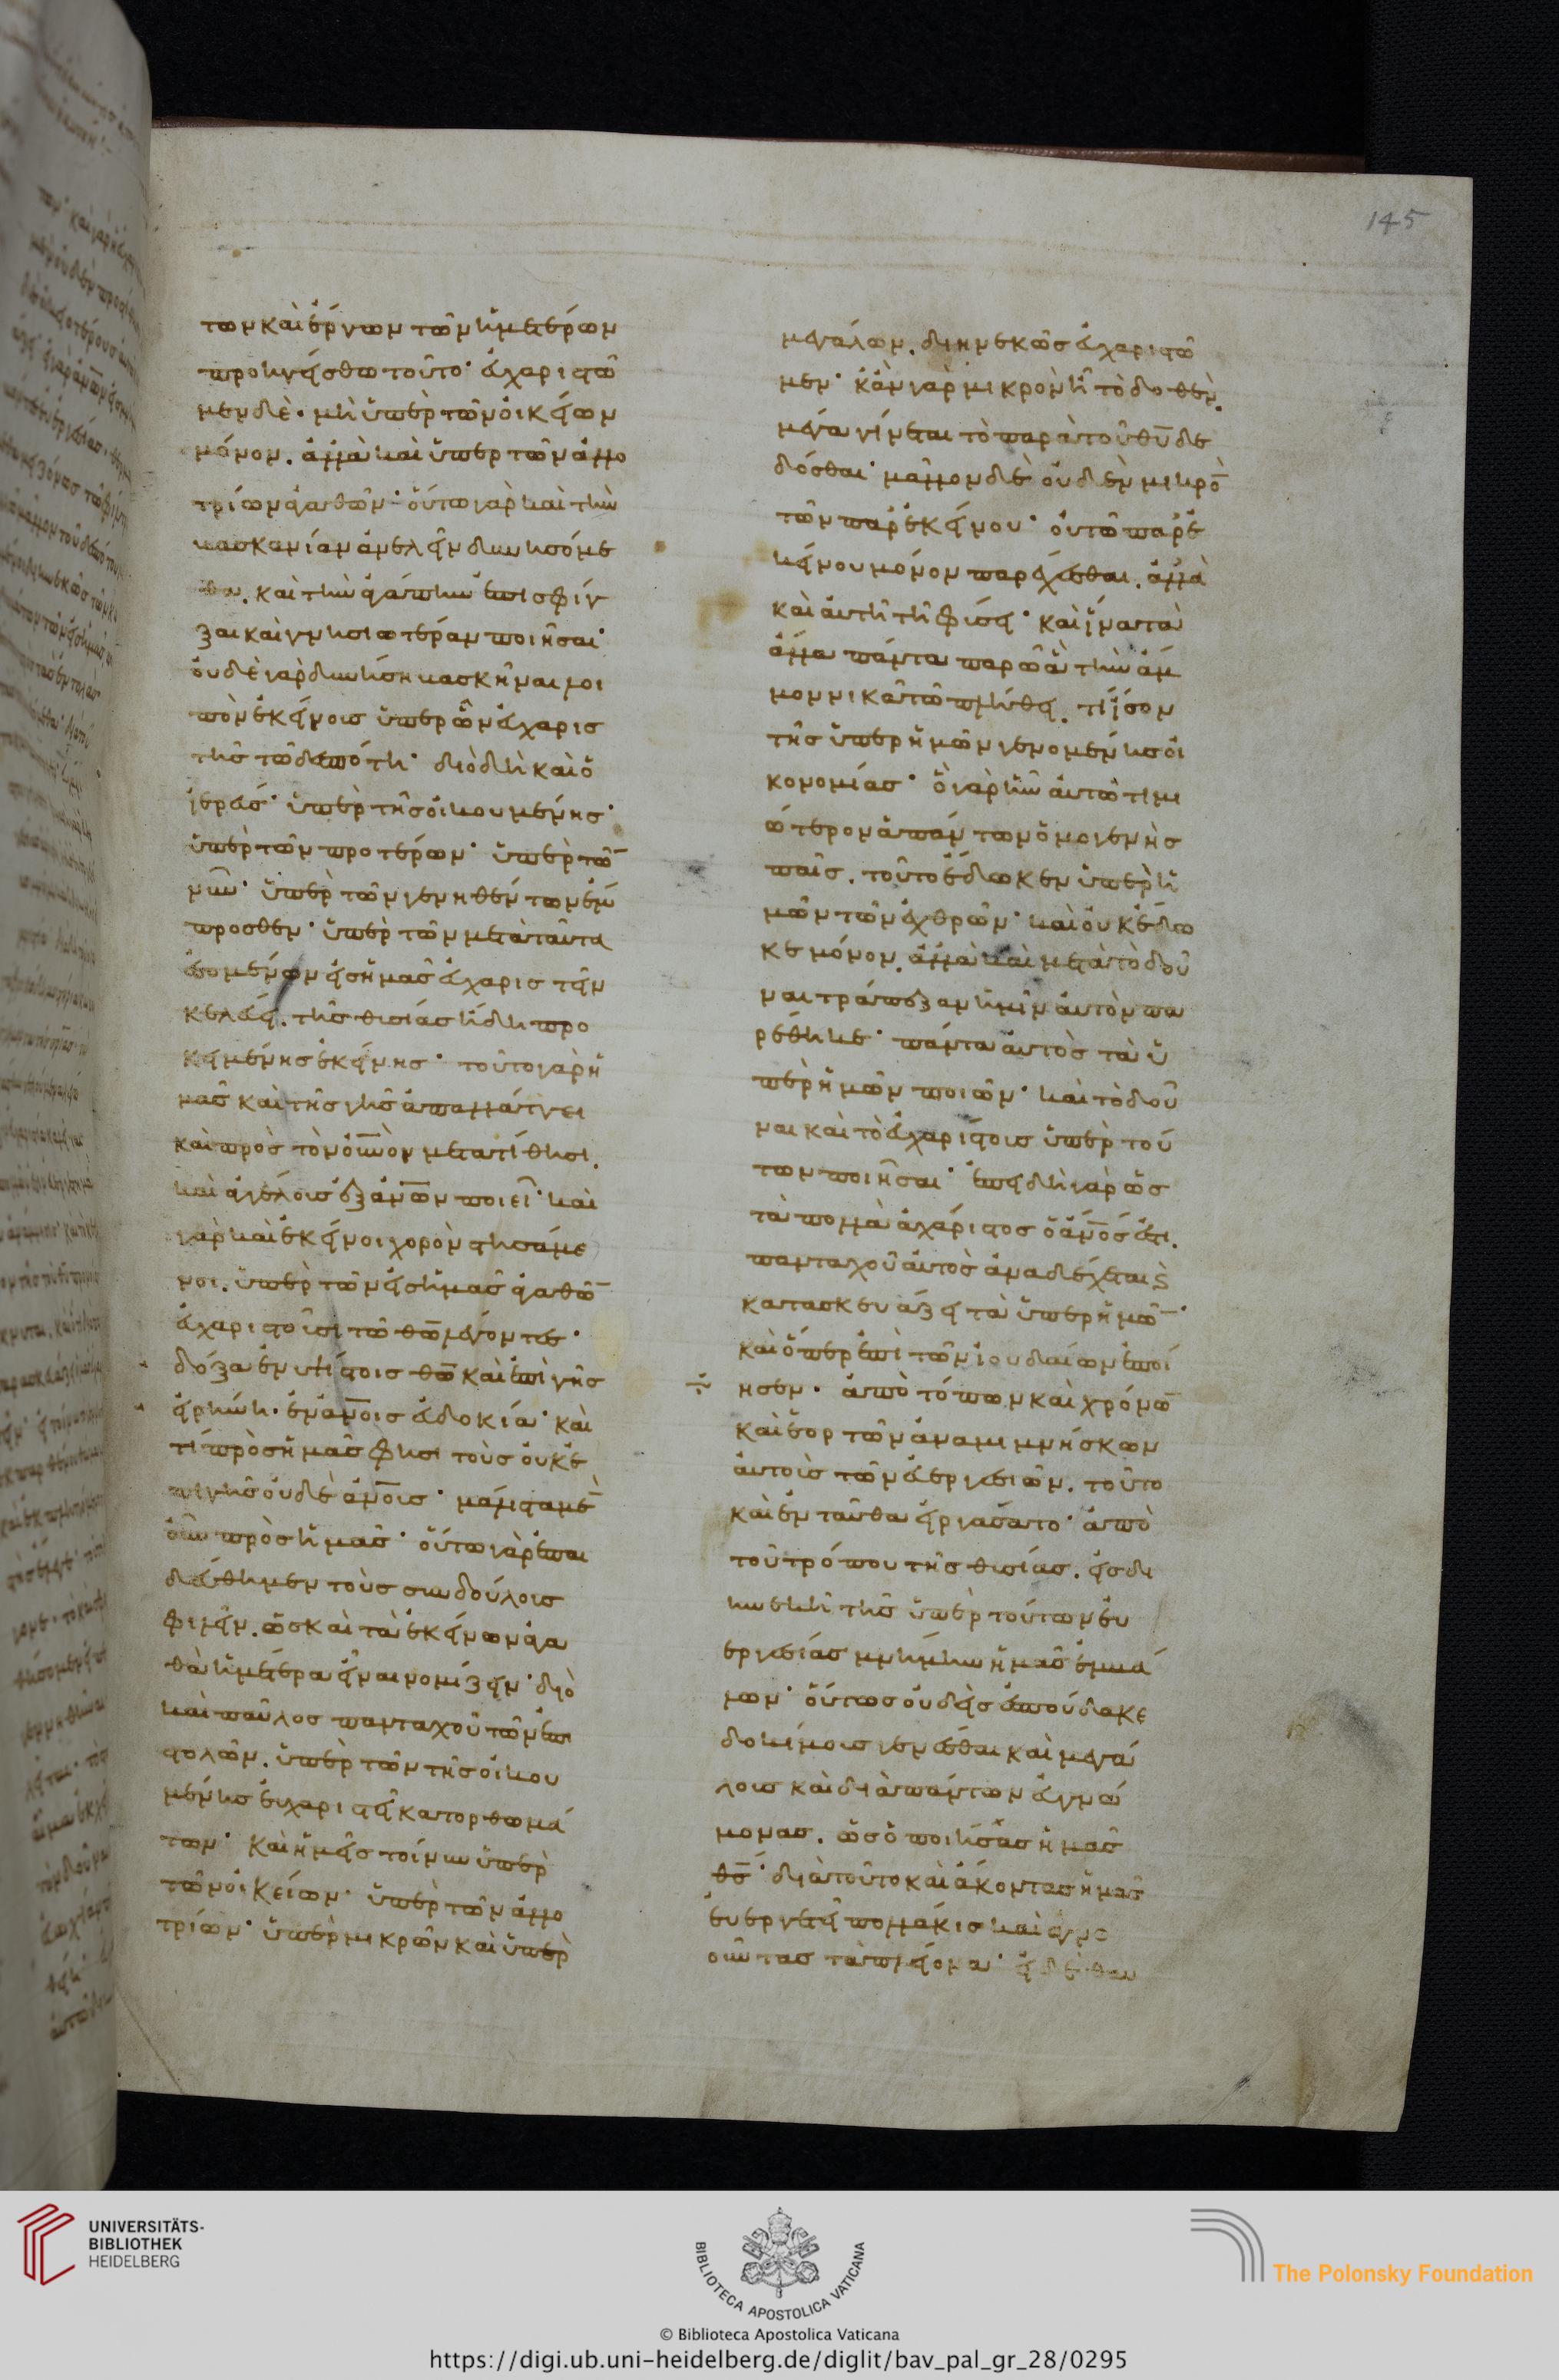 145
των καὶ ἔργων τῶν ἡμετέρων
προηγείσθω τοῦτο· εὐχαριστῶ
μεν δὲ· μὴ ὑπὲρ τῶν οἰκείων
μόνον, ἀλλὰ καὶ ὑπὲρ τῶν ἀλλο
τρίων ἀγαθῶν· οὕτω γὰρ καὶ τὴν
βασκανίαν ἀνελεῖν δυνησόμε
θα, καὶ τὴν ἀγάπην ἐπισφίγ
ξαι καὶ γνησιωτέραν ποιῆσαι·
οὐδὲ γὰρ δυνήση βασκῆναι λοι
πὸν ἐκείνοις ὑπὲρ ὧν εὐχαρισ
τῆς τῶ δεσπότη· διὸ δὴ καὶ ὁ
ἱερεύς· ὑπὲρ τῆς οἰκουμένης·
ὑπὲρ τῶν προτέρων· ὑπὲρ τῶ̅
νῦν· ὑπὲρ τῶν γενηθέντων ἔμ
προσθεν· ὑπὲρ τῶν μετὰ ταῦτα
ἐσομένων εἰς ἡμᾶς εὐχαριστεῖν
κελεύει, τῆς θυσίας ἤδη προ
κειμένης ἐκείνης· τοῦτο γὰρ ἡ
μᾶς καὶ τῆς γῆς ἀπαλλάττει
καὶ πρὸς τὸν οὐ̅νὸν μετατίθησι,
καὶ ἀγγέλους ἐξ ἀν̅ων ποιεῖ· καὶ
γὰρ καὶ ἐκεῖνοι χορὸν στησάμε
νοι, ὑπὲρ τῶν εἰς ἡμᾶς ἀγαθῶ̅
εὐχαριστοῦσι τῶ θω̅ λέγοντες·
δόξα ἐν ὑψίστοις θω̅ καὶ ἐπὶ γῆς
εἰρήνη, ἐν ἀν̅οις εὐδοκία· καὶ
τί πρὸς ἡμᾶς φησι τοὺς οὐκ ἐ
πὶ γῆς οὐδὲ ἀν̅οις· μάλιστα μὲ̅
οὖν πρὸς ἡμᾶς· οὕτω γὰρ ἐπαι
δεύθημεν τοὺς συνδούλους
φιλεῖν, ὡς καὶ τὰ ἐκείνων ἀγα
θὰ ἡμέτερα εἶναι νομίζειν· διὸ
καὶ παῦλος πανταχοῦ τῶν ἐπι
στολῶν, ὑπὲρ τῶν τῆς οἰκου
μένης εὐχαριστεῖ κατορθωμά
των· καὶ ἡμεῖς τοίνυν ὑπὲρ
τῶν οἰκείων· ὑπὲρ τῶν ἀλλο
τρίων· ὑπὲρ μικρῶν καὶ ὑπὲρ
μεγάλων, διηνεκῶς εὐχαριστῶ
μεν· κἂν γὰρ μικρὸν ἦ τὸ δοθὲν,
μέγα γίνεται τὸ παρὰ τοῦ θυ̅ δε
δόσθαι· μᾶλλον δὲ οὐδὲν μικρὸ̅
τῶν παρ' ἐκείνου· οὐ τῶ παρ' ἐ
κείνου μόνον παρέχεσθαι, ἀλλὰ
καὶ αὐτῆ τῆ φύσει· καὶ ἵνα τὰ
ἄλλα πάντα παρῶ ἃ τὴν ἄμ
μον νικᾶ τῶ πλήθει, τί ἴσον
τῆς ὑπὲρ ἡμῶν γενομένης οἰ
κονομίας· ὃ γὰρ ἦν αὐτῶ τιμι
ώτερον ἁπάντων ὁ μονογενὴς
παῖς, τοῦτο ἔδωκεν ὑπὲρ ἡ
μῶν τῶν ἐχθρῶν· καὶ οὐκ ἔδω
κε μόνον, ἀλλὰ καὶ μετὰ τὸ δοῦ
ναι τράπεζαν ἡμῖν αὐτὸν πα
ρέθηκε· πάντα αὐτὸς τὰ ὑ
πὲρ ἡμῶν ποιῶν· καὶ τὸ δοῦ
ναι καὶ τὸ εὐχαρίστους ὑπὲρ τού
των ποιῆσαι· ἐπειδὴ γὰρ ὡς
τὰ πολλὰ ἀχάριστος ὁ ἄν̅ος ἐστι,
πανταχοῦ αὐτὸς ἀναδέχεται ϗ
κατασκευάζει τὰ ὑπὲρ ἡμῶ̅·
καὶ ὅπερ ἐπὶ τῶν ἰουδαίων ἐποί
ησεν· ἀπὸ τόπων καὶ χρόνω̅
καὶ ἑορτῶν ἀναμιμνήσκων
αὐτοὺς τῶν εὐεργεσιῶν, τοῦτο
καὶ ἐνταῦθα εἰργάσατο· ἀπὸ
τοῦ τρόπου τῆς θυσίας, εἰς δι
ηνεκῆ τῆς ὑπὲρ τούτων εὐ
εργεσίας μνήμην ἡμᾶς ἐμβά
λων· οὕτως οὐδεὶς ἐσπούδακε
δοκίμους γενέσθαι καὶ μεγά
λους καὶ διὰ πάντων εὐγνώ
μονας, ὡς ὁ ποιήσας ἡμᾶς
θς̅· διὰ τοῦτο καὶ ἄκοντας ἡμᾶς
εὐεργετεῖ πολλάκις καὶ ἀγνο
οῦντας τὰ πλείονα· εἰ δὲ θαυ
UNIVERSITÄTS-
BIBLIOTHEK
HEIDELBERG
BIBLIOTECA APOSTOLICA VATICANA
The Polonsky Foundation
© Biblioteca Apostolica Vaticana
https://digi.ub.uni-heidelberg.de/diglit/bav_pal_gr_28/0295